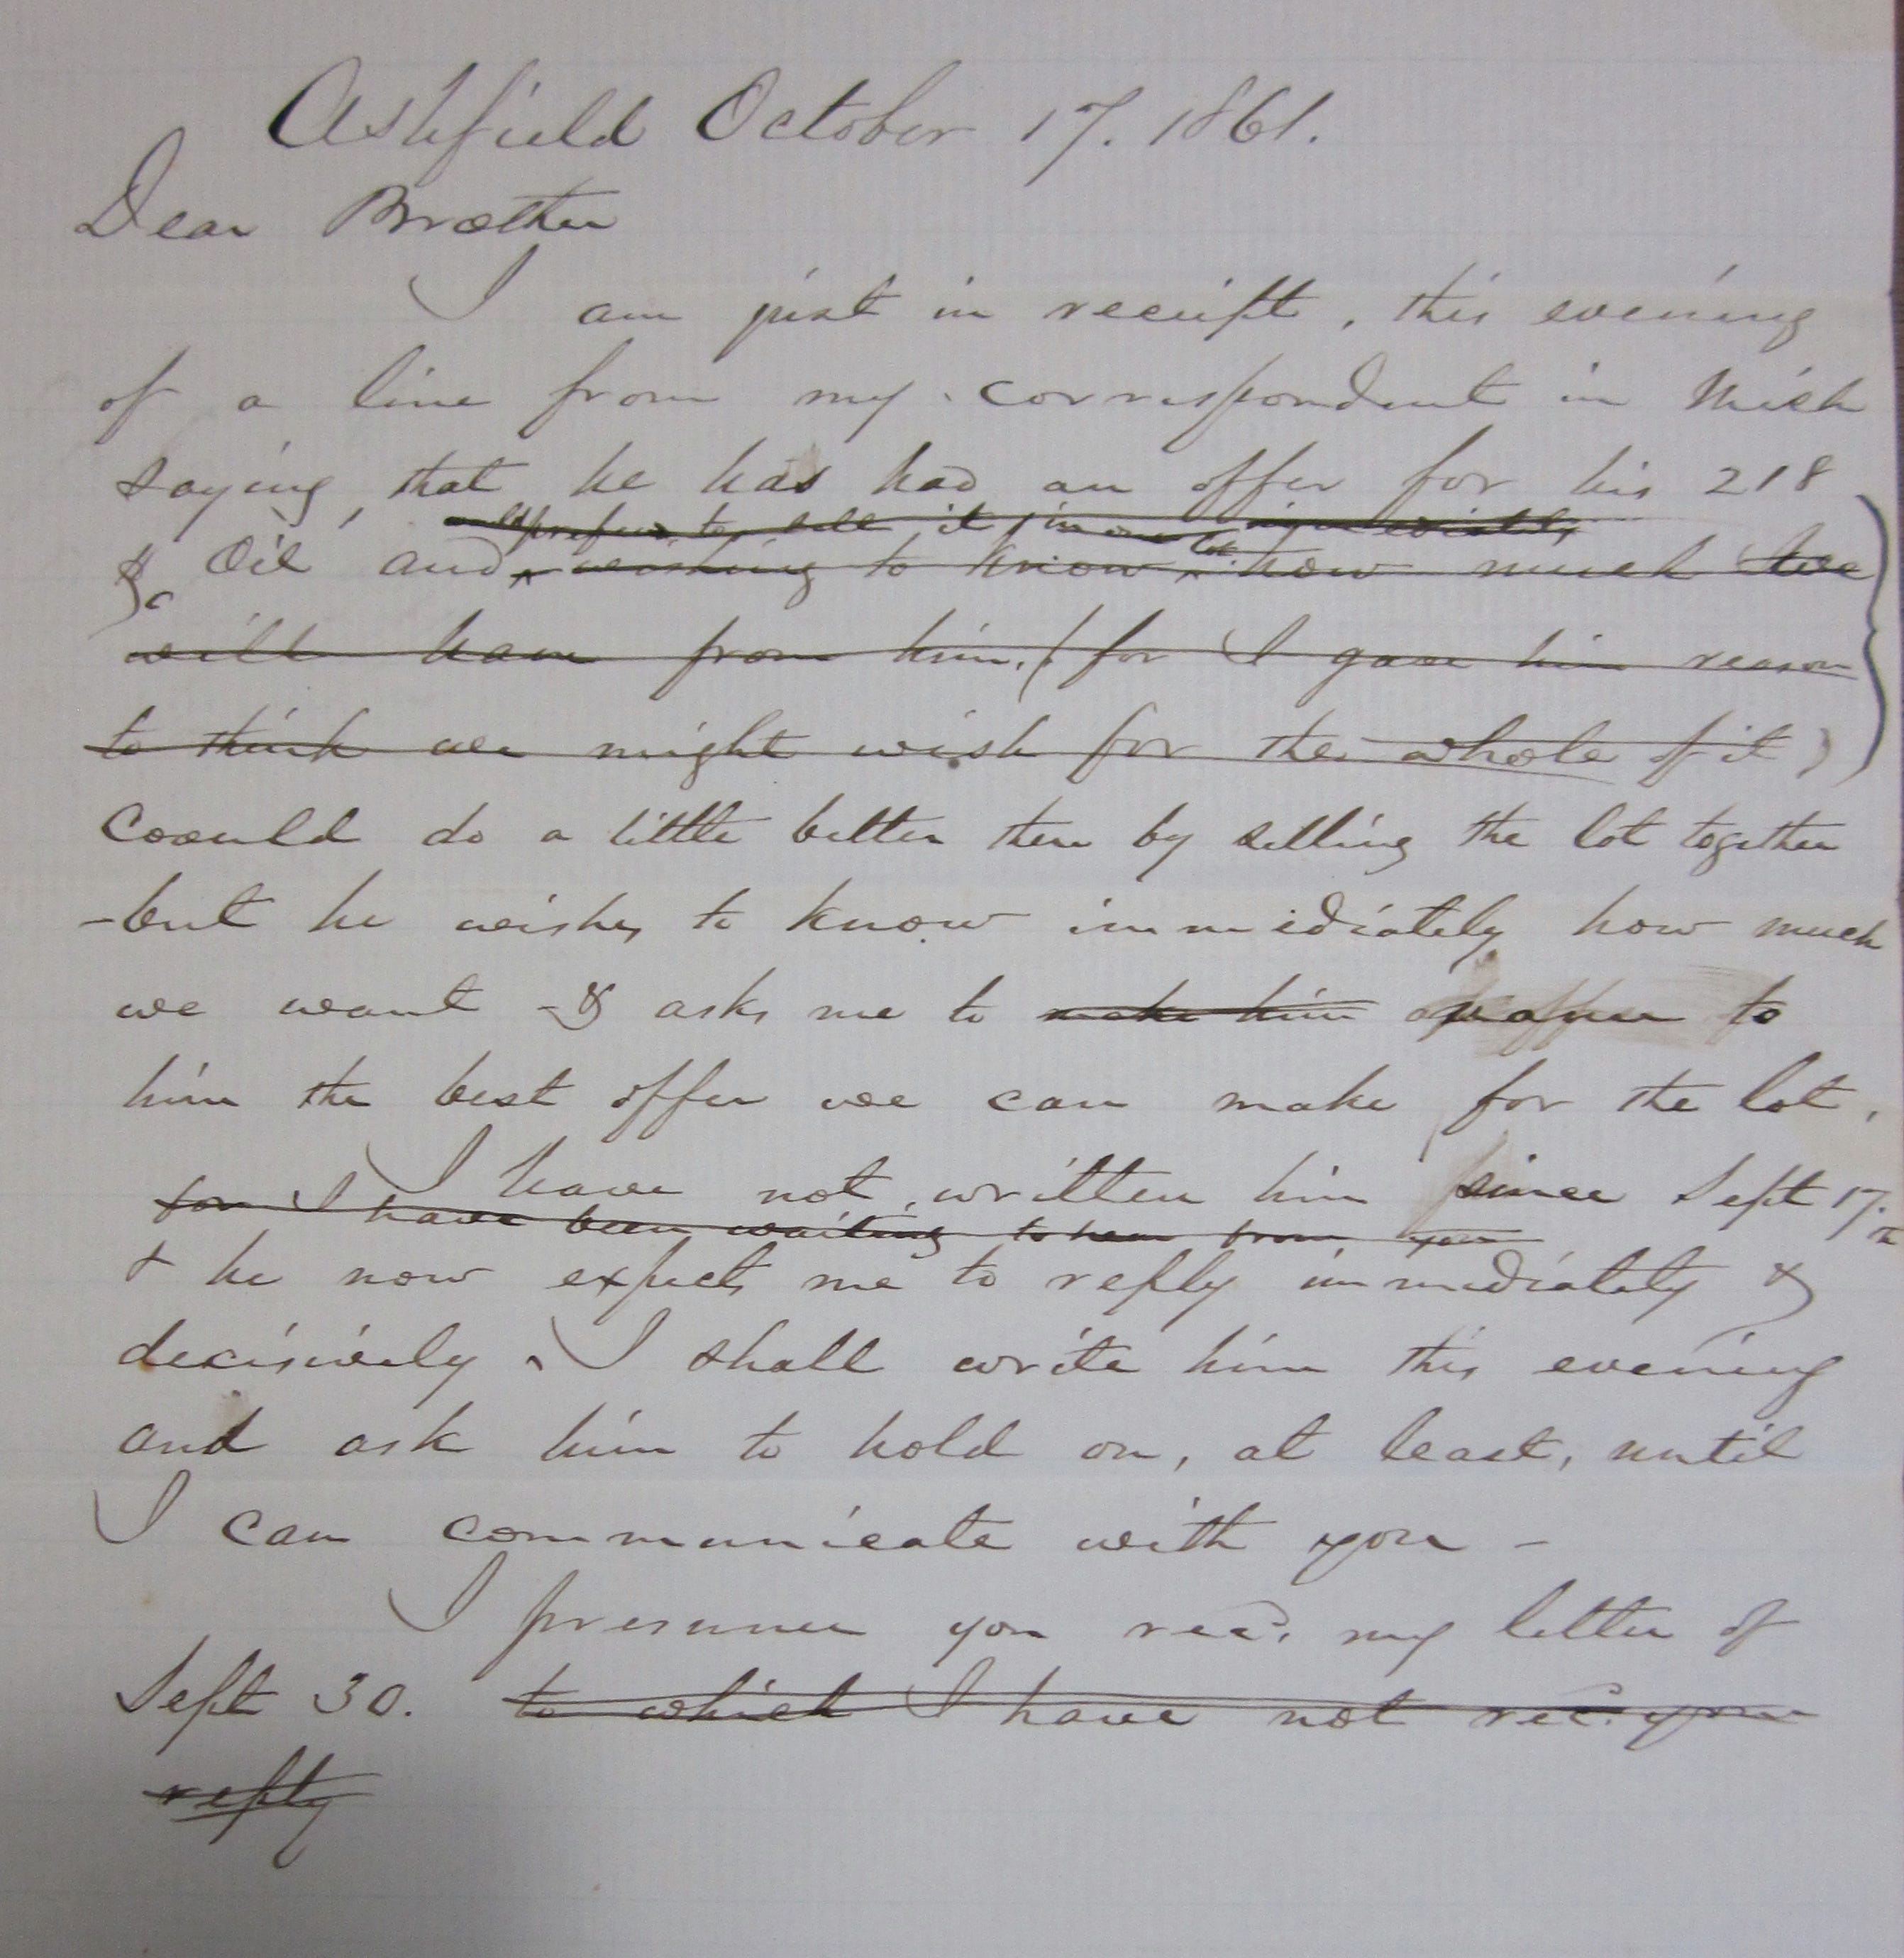 Ashfield October 17. 1861.
Dear Brother
I am just in receipt, this evening
of a line from my correspondent in Mich
saying, that he has had an offer for his 218
prefers to sell it, in one lot immediately
$ Oil and wishing to know how much we
&c
will have from him, (for I gave him reason
to think we might wish for the whole of it)
Coould do a little better then by selling the lot together
- but he wishes to know immidiately how much
we want - & asks me to make him to
him the best offer we can make for the lot,
I have not written him since Sept 17.
for I have been waiting to hear from you
+ he now expects me to reply immediately &
decisively. I shall write him this evening
and ask him to hold on, at least, until
I can communicate with you -
I presume you recd. my letter of
Sept 30. to which I have not recd. your
reply